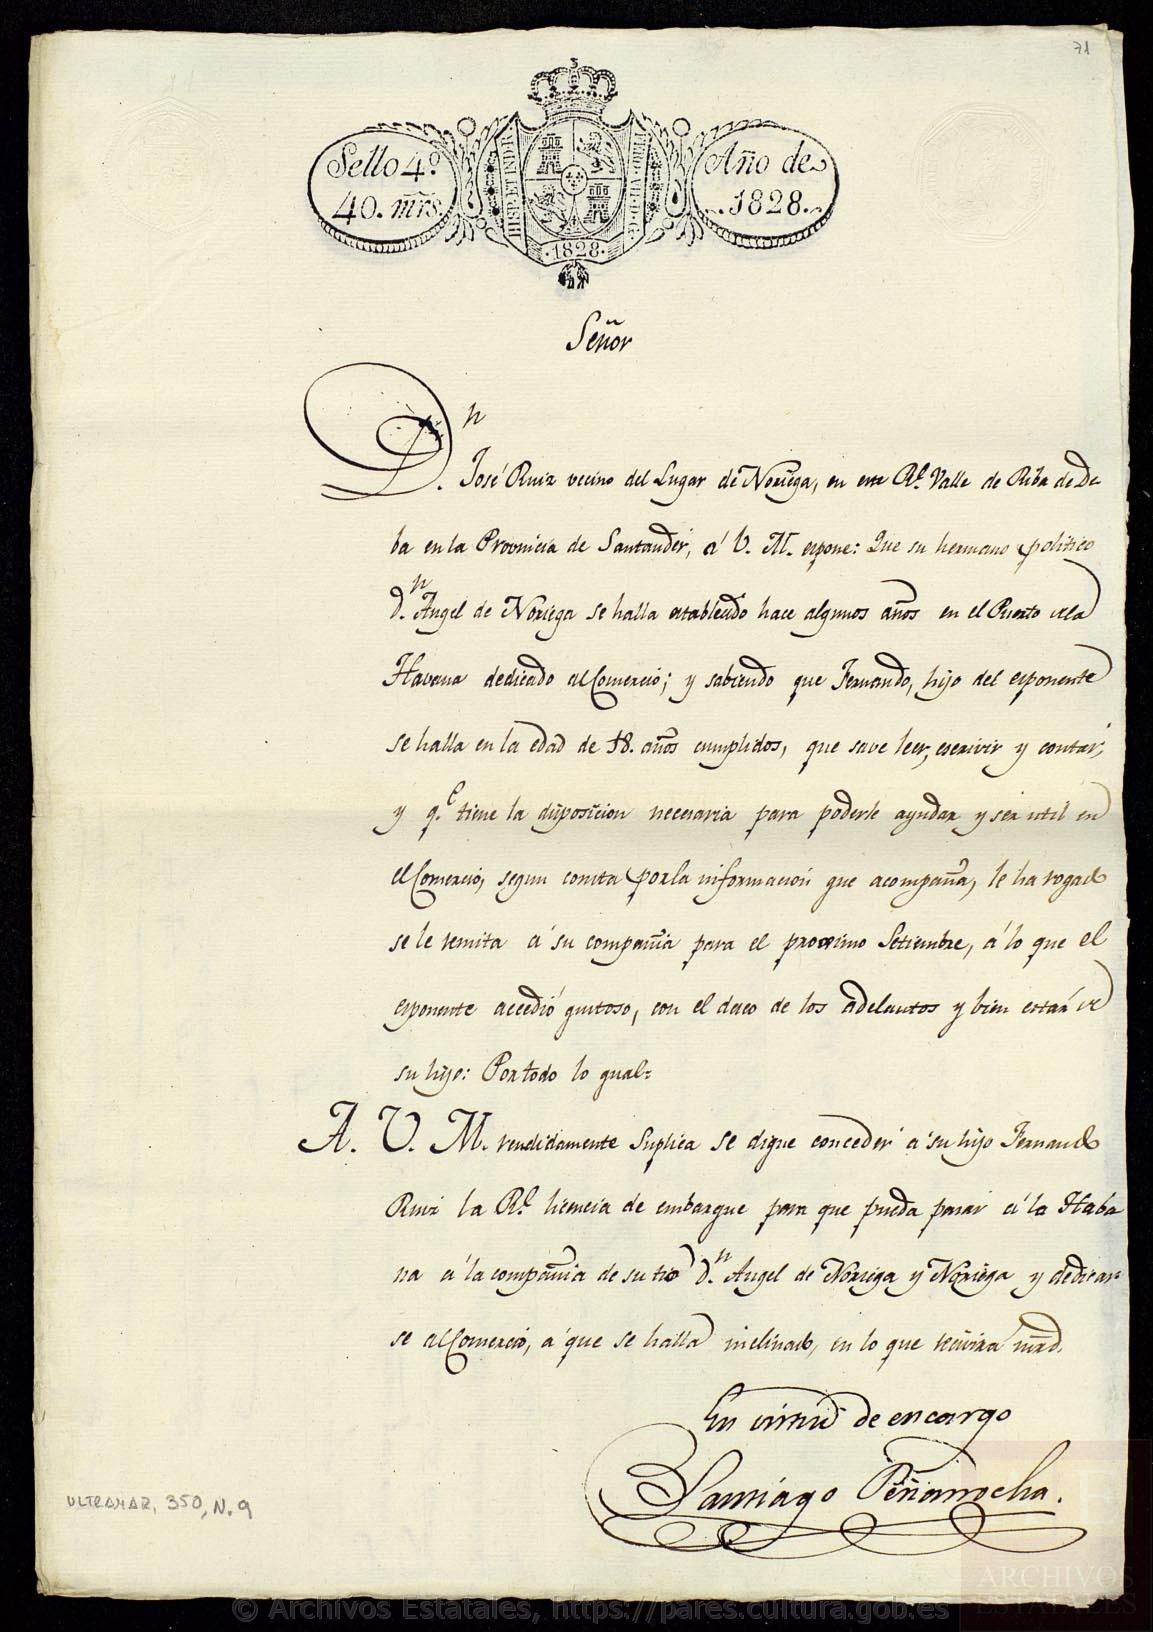 71
Sello 4º
40. mrs.
HISP. ET IND. R.
FERD. VII. D. G.
Año de
1828.
.1828.
Señor
D.n José Ruiz vecino del Lugar de Noriega, en este Rl. Valle de Riba de De-
ba en la Provincia de Santander, á V. M. espone: Que su hermano politico
d.n Ángel de Noriega se halla establecido hace algunos años en el Puerto de la
Havana dedicado al Comercio; y sabiendo que Fernando, hijo del esponente
se halla en la edad de 18. años cumplidos, que save leer, escrivir y contar;
y q.e tiene la disposicion necesaria para poderle ayudar y ser util en
el Comercio, segun consta por la informacion que acompaña, le ha rogado
se le remita á su compañia para el proximo Setiembre, á lo que el
esponente accedió gustoso, con el deseo de los adelantos y bien estar de
su hijo: Por todo lo qual=
A. V. M. rendidamente Suplica se digne conceder á su hijo Fernando
Ruiz la Rl. licencia de embarque para que pueda pasar á la Haba
na á la compañia de su tio d.n Angel de Noriega y Noriega y dedicar-
se al Comercio, á que se halla inclinado, en lo que recivirá mrd.
En virtud de encargo
Santiago Peñarrocha.
ULTRAMAR, 350, N. 9
ARCHIVOS
ESTATALES
© Archivos Estatales, https://pares.cultura.gob.es